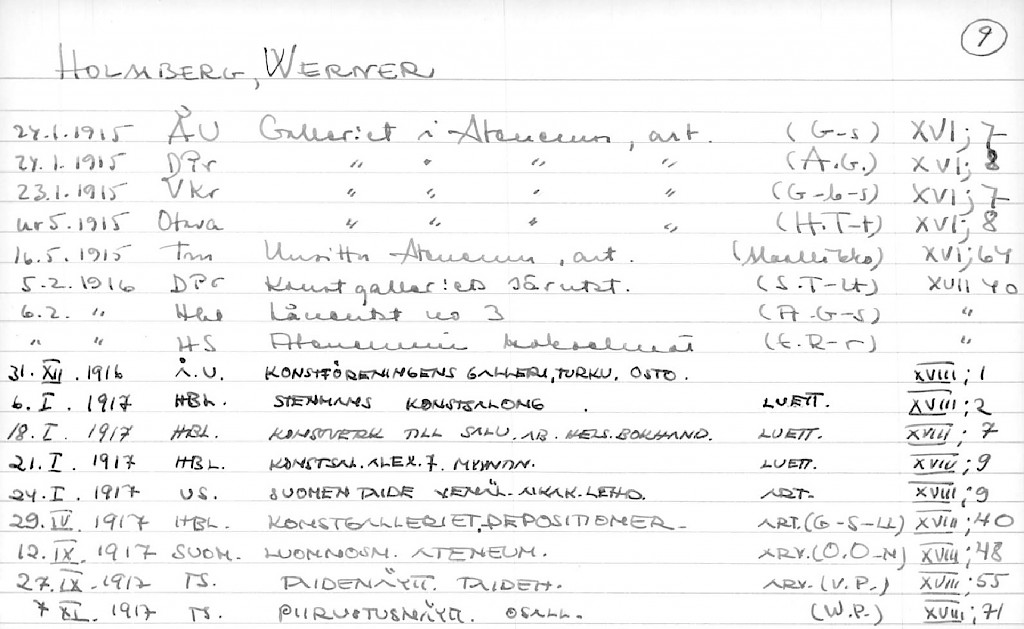 9
HOLMBERG, WERNER
24.1.1915 ÅU Galleriet i Ateneum, art. (G-s) XVI; 7
24.1.1915 DPr " " " " (A.G.) XVI; 8
23.1.1915 VKr " " " " (G-b-s) XVI; 7
nr 5. 1915 Otava " " " " (H.T-t) XVI; 8
16.5.1915 Ateneum, art. (Maallikko) XVI; 64
5.2.1916 DPr Konstgalleriets (S.T-ll) XVII 40
6.2. " Hbl no 3 (A.G-s) "
" " HS Ateneumin kokoelmat (E.R-r) "
31.XII.1916 Å.U. KONSTFÖRENINGENS GALLERI, TURKU. OSTO. XVIII; 1
6.I.1917 HBL. STENMANS KONSTSALONG. LUETT. XVIII; 2
18.I.1917 HBL. KONSTVERK TILL SALU. AB. HELS. BOKHAND. LUETT. XVIII; 7
21.I.1917 HBL. KONSTSAL. ALEX. 7. MYYNN. LUETT. XVIII; 9
24.I.1917 US. SUOMEN TAIDE VENÄL. AIKAK. LEHD. ART. XVIII; 9
29.IV.1917 HBL. KONSTGALLERIET, DEPOSITIONER. ART. (G-S-LL) XVIII; 40
12.IX.1917 SUOM. LUONNOSM. ATENEUM. ARV. (O.O-N) XVIII; 48
27.IX.1917 TS. TAIDENÄYTT. TAIDEH. ARV. (V.P.) XVIII; 55
7 XI.1917 TS. PIIRUSTUSNÄYTT. OSALL. (W.P.) XVIII; 71